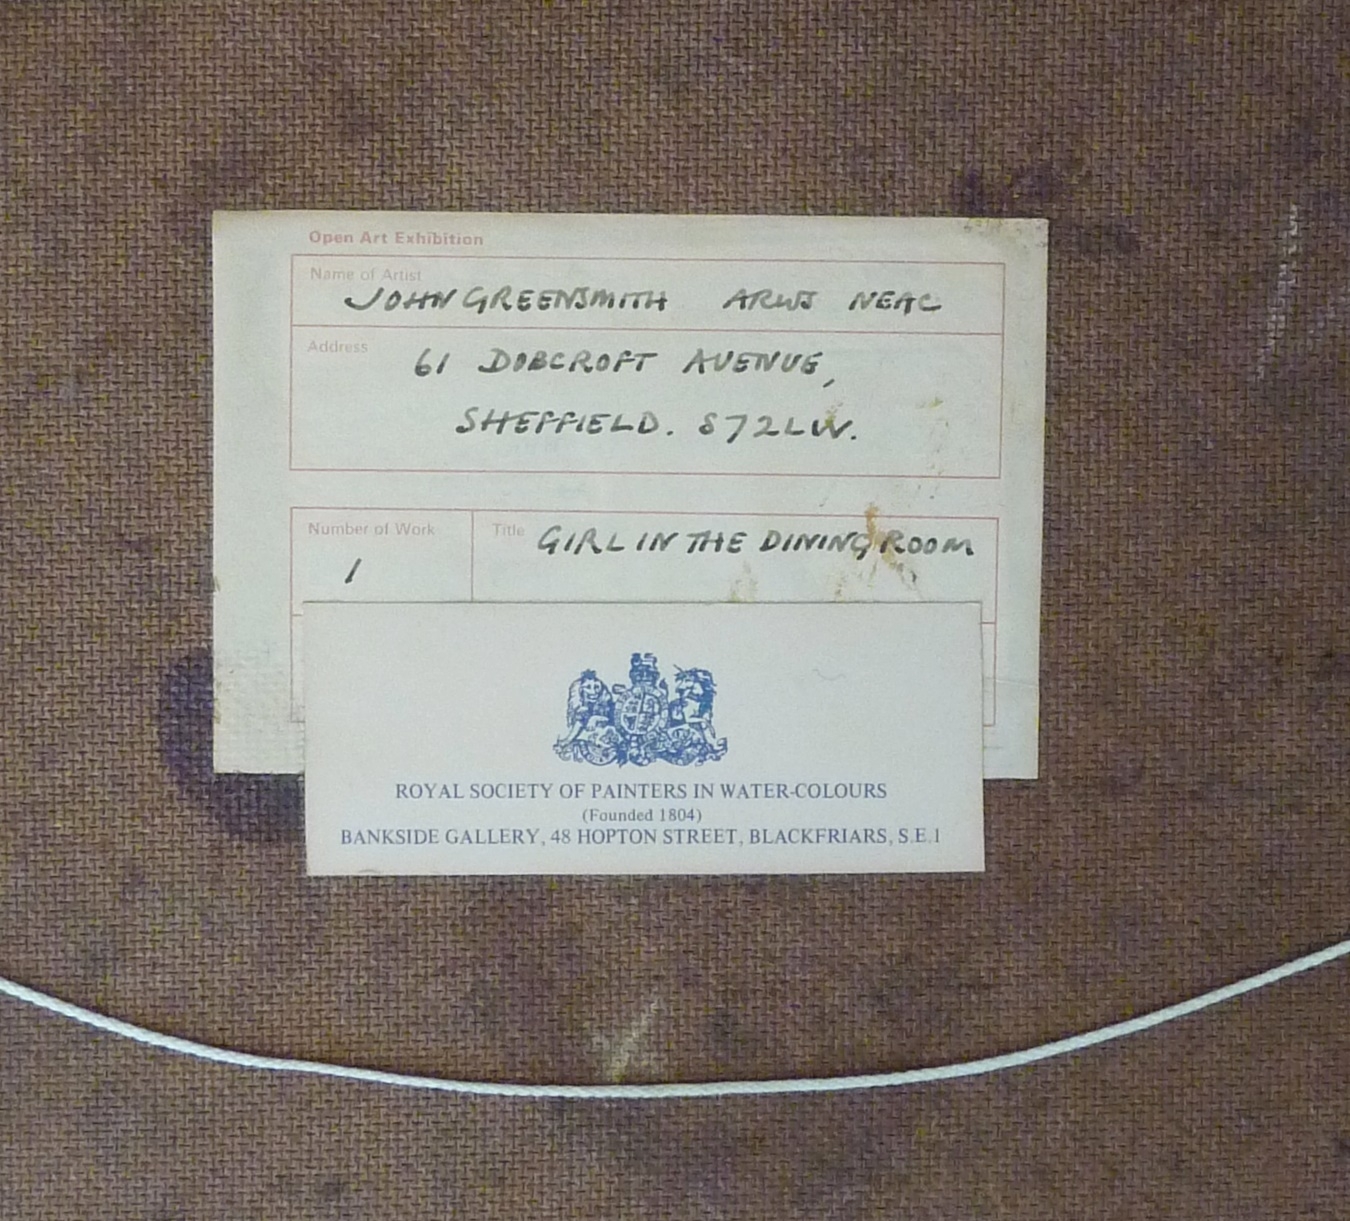 Open Art Exhibition
Name of Artist
JOHN GREENSMITH ARWS NEAC
Address
61 DOBCROFT AVENUE,
SHEFFIELD. S72LW.
Number of Work
1
Title
GIRL IN THE DINING ROOM
ROYAL SOCIETY OF PAINTERS IN WATER-COLOURS
(Founded 1804)
BANKSIDE GALLERY, 48 HOPTON STREET, BLACKFRIARS, S.E.1